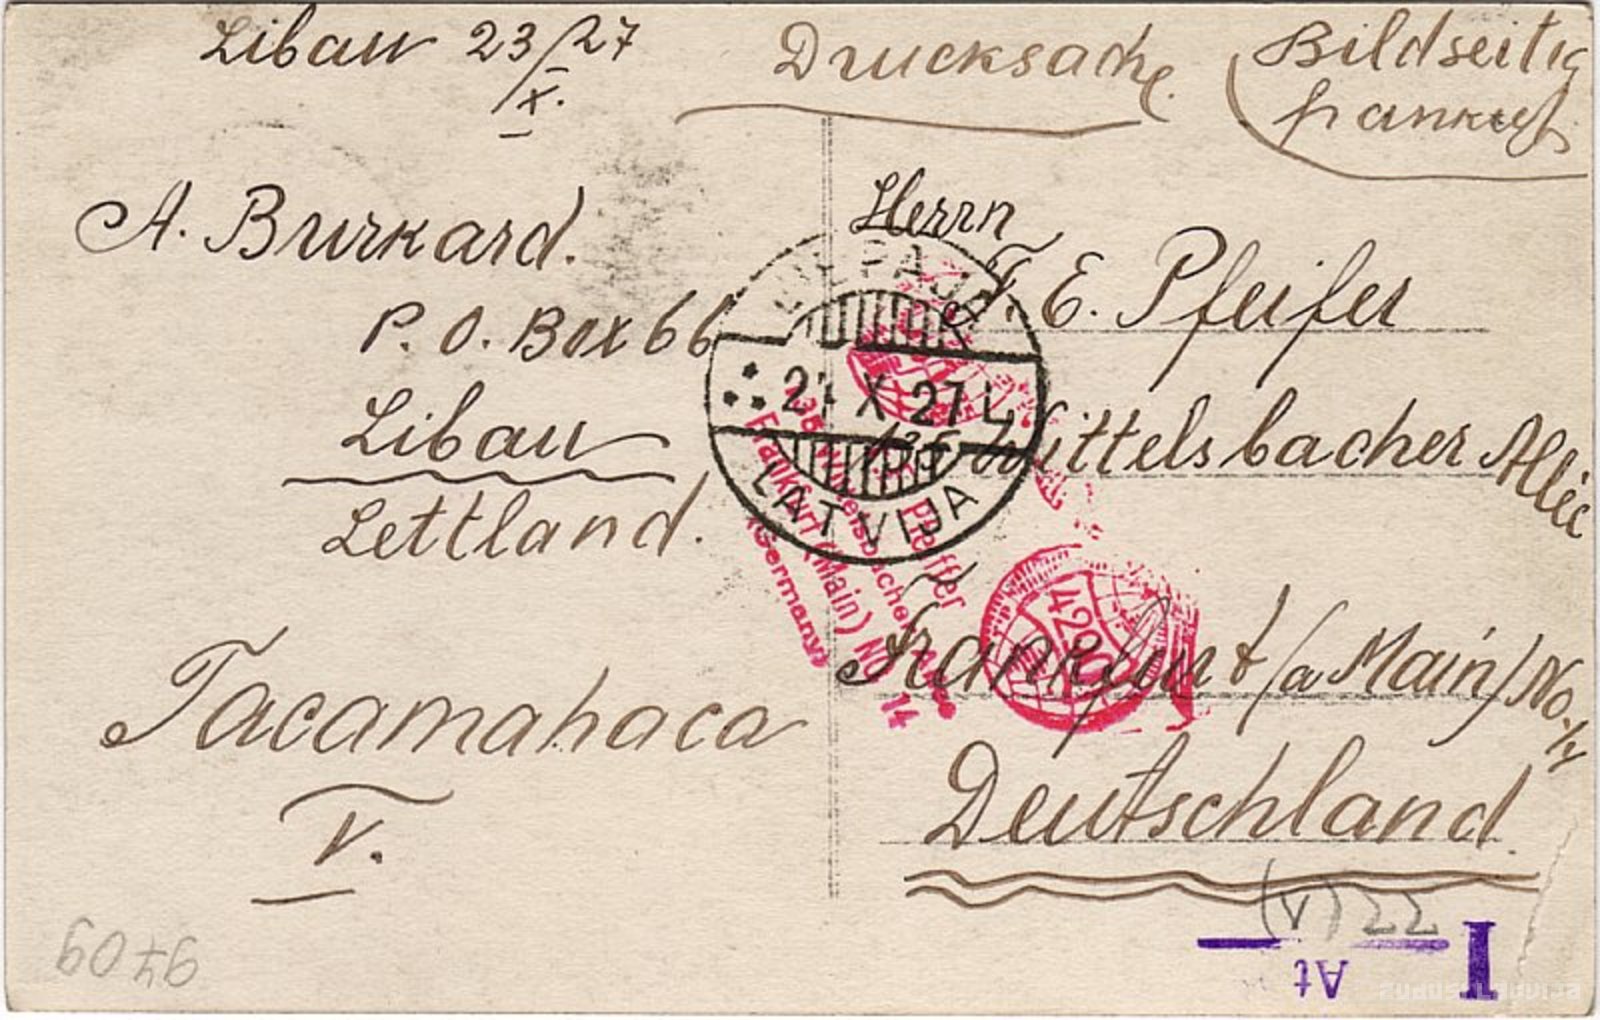 Libau 23/27
X.
Drucksache
Bildseitig
A. Burkard.
P. O. Box 66
Libau
Lettland.
Tacamahaca
V.
Herrn
F. E. Pfeifer
Wittelsbacher Allee
Frankfurt (a Main) No. 14
Deutschland.
LIEPAJA
X 27 L
LATVIJA
Pfeiffer
Frankfurt (Main) No 14
(Germany)
4290
I
At
zudusilatvija